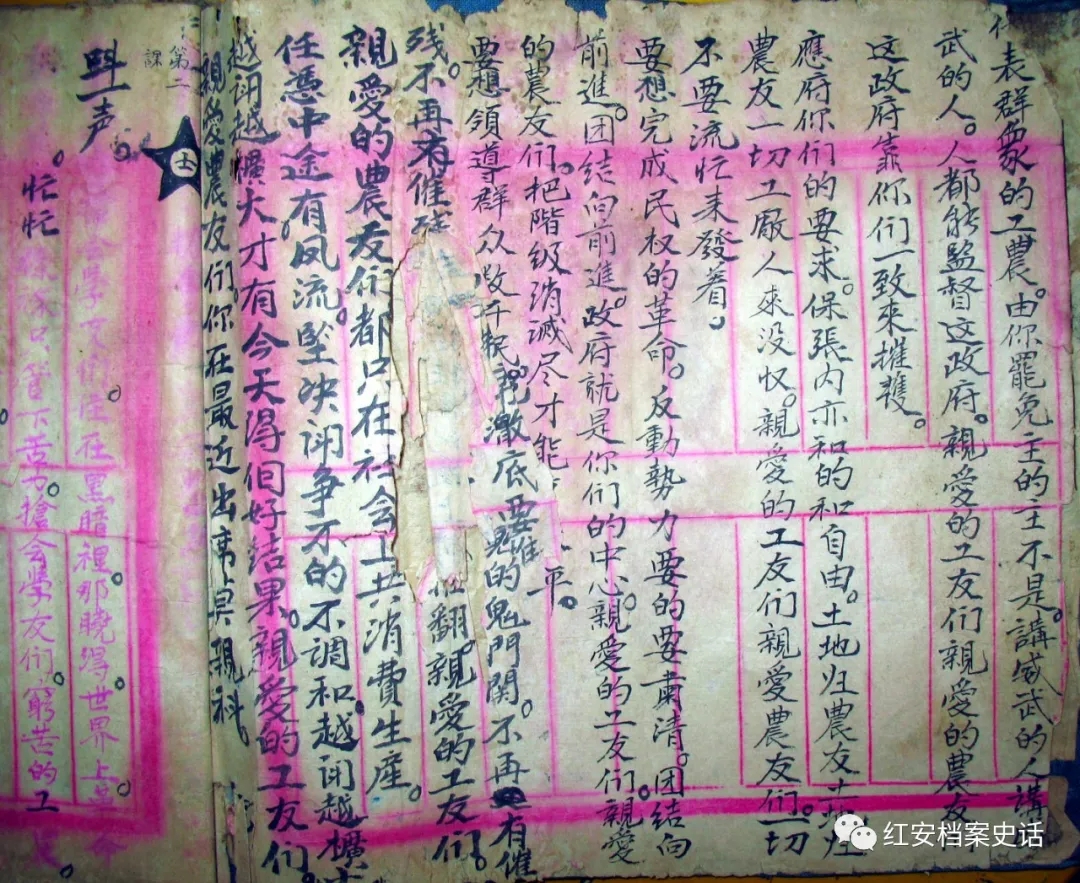 代表群衆的工農。由你罷免主的主不是。講威武的人講
武的人。人都能監督这政府。親愛的工友们親爱的農友
这政府靠你们一致來擁護。
應府你们的要求。保張内亦和的和自由。土地归農友土地归
農友一切工厰人來没收。親愛的工友们親爱農友们。一切
不要流忙来發着。
要想完成民权的革命。反動勢力要的要粛清。团结向
前進。团结向前進。政府就是你们的中心。親愛的工友们。親愛
的農友们。把階级消滅尽才能 平。
要想領導群众 澈底要 的鬼門関。不再有催
残。不再有催残 在翻。親愛的工友们。
親愛的農友们都只在社会上共消費生産。
任憑中途有风流。坚决闭争不的不調和。越闭越擴大
越闭越擴大才有今天得個好结果。親愛的工友们。
親愛農友们。你在最近出席貞親科。
第二課
士
一声。
学友们。 在黑暗裡。那曉得世界上
忙忙
只管下苦力。 会学友们。窮苦的工
红安档案史话